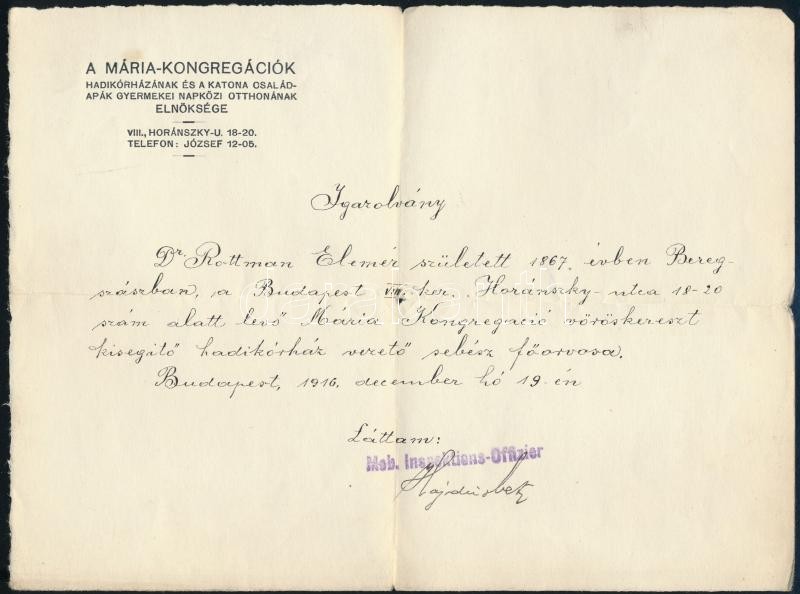 A MÁRIA-KONGREGÁCIÓK
HADIKÓRHÁZÁNAK ÉS A KATONA CSALÁD-
APÁK GYERMEKEI NAPKÖZI OTTHONÁNAK
ELNÖKSÉGE
VIII., HORÁNSZKY-U. 18-20.
TELEFON: JÓZSEF 12-05.
Igazolvány
Dr. Rottman Elemér született 1867. évben Bereg-
szászban, a Budapest VIII. ker. Horánszky-utca 18-20
szám alatt levő Mária Kongregació vöröskereszt
kisegitő hadikórház vezető sebész főorvosa.
Budapest, 1916. december hó 19-én
Láttam:
Mob. Inspektions-Offizier